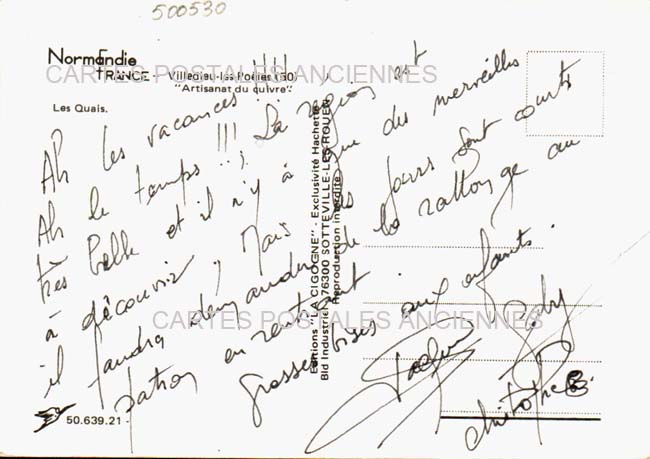 500530
Normandie
FRANCE - Villedieu-les-Poêles (50)
"Artisanat du cuivre"
Les Quais.
CARTES POSTALES ANCIENNES
Ah les vacances !!!!
Ah le temps !!! La région est
très belle et il n'y a que des merveilles
à découvrir, Mais les jours sont courts
il faudra demander de la rallonge au
patron en rentrant.
Grosses bises aux enfants.
CARTES POSTALES ANCIENNES
Christophe
Editions "LA CIGOGNE" - Exclusivité Hachette
Bld Industriel 76300 SOTTEVILLE-LES-ROUEN
Reproduction interdite
50.639.21 -